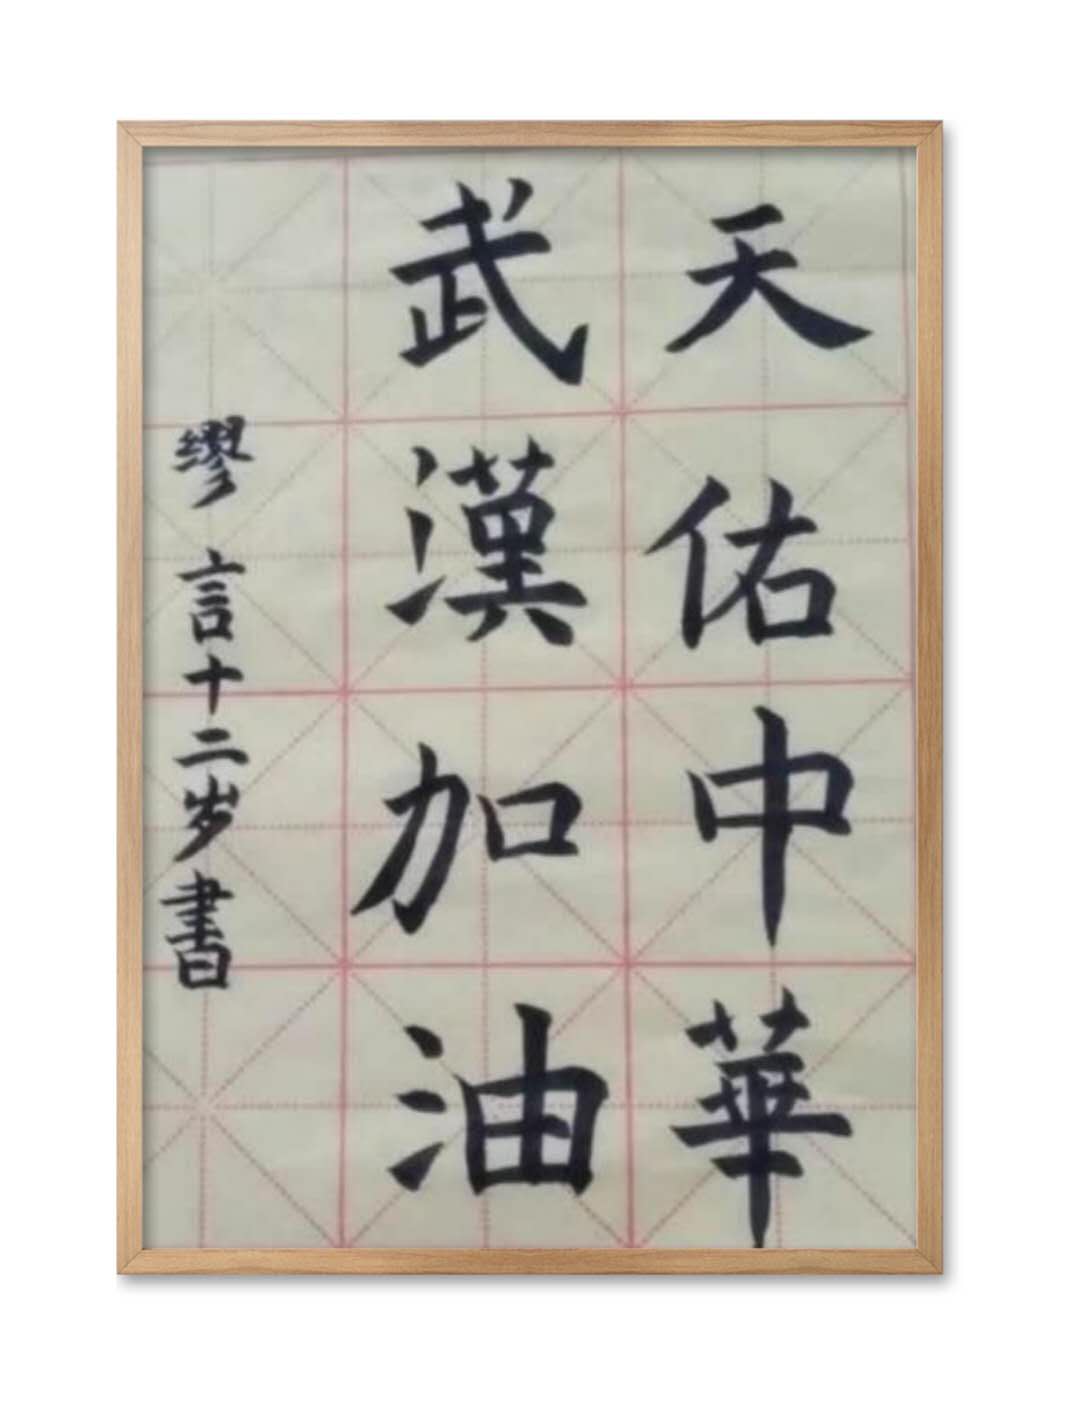 天佑中華
武漢加油
繆言十二岁書